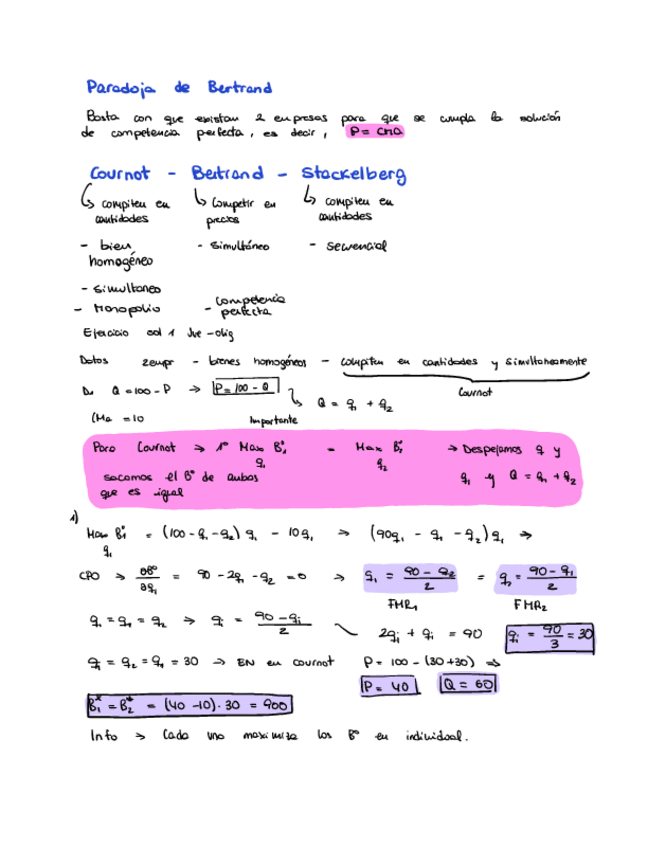 Paradoja de Bertrand
Basta con que existan 2 empresas para que se cumpla la solución
de competencia perfecta, es decir, P = CMA
Cournot - Bertrand - Stackelberg
↳ compiten en cantidades
↳ Competir en precios
↳ compiten en cantidades
- bien homogéneo
- Simultáneo
- secuencial
- simultaneo
- Monopolio
- Competencia perfecta
Ejercicio col 1
Datos 2 empr - bienes homogéneos - compiten en cantidades y simultaneamente
Cournot
Q = 100 - P → P = 100 - Q
↳ Q = q₁ + q₂
CMa = 10
Importante
Para Cournot → 1º Max B₁º q₁ = Max B₂º q₂ → Despejamos q y
sacamos el Bº de ambos
que es igual
q₁ y Q = q₁ + q₂
1)
Max B₁º q₁ = (100 - q₁ - q₂) q₁ - 10q₁ ⇒ (90q₁ - q₁ - q₂) q₁ ⇒
CPO → ∂Bº/∂q₁ = 90 - 2q₁ - q₂ = 0 → q₁ = (90 - q₂)/2 = q₂ = (90 - q₁)/2
FMR₁ FMR₂
→ qᵢ = (90 - qᵢ)/2 2qᵢ + qᵢ = 90 qᵢ = 90/3 = 30
= 30 → EN en Cournot P = 100 - (30+30) ⇒
P = 40 Q = 60
B₁* = B₂* = (40 - 10) · 30 = 900
Info → Cada uno maximiza los Bº en individual.